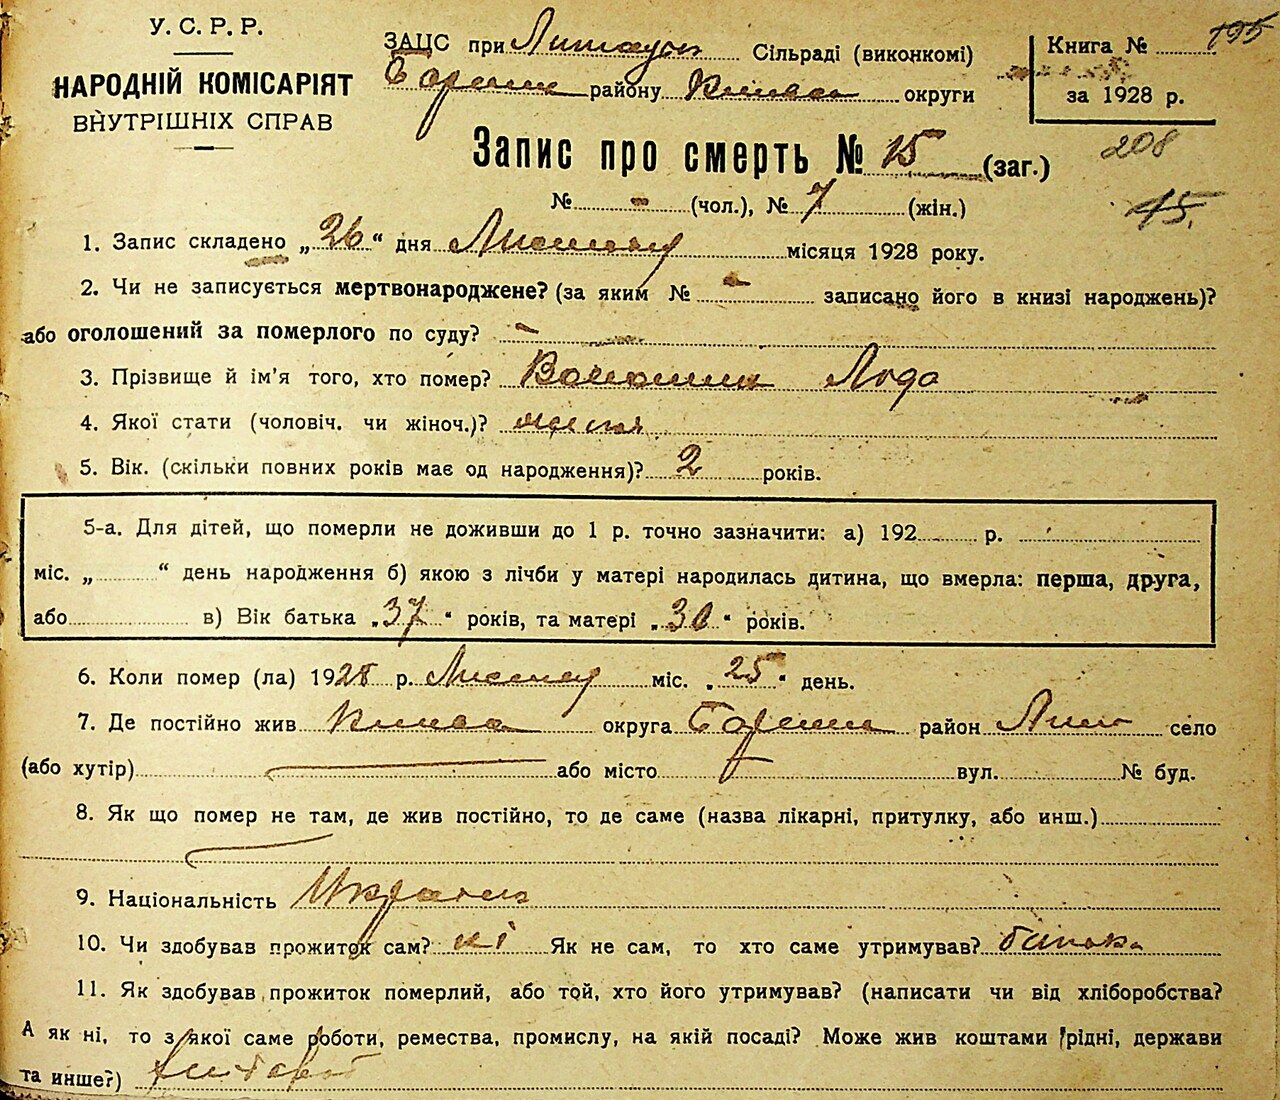 У. С. Р. Р.
НАРОДНІЙ КОМІСАРІЯТ
ВНУТРІШНІХ СПРАВ
ЗАЦС при Сільраді (виконкомі)
району округи
Книга № 195
за 1928 р.
208
Запис про смерть № 15 (заг.)
№ - (чол.), № 7 (жін.)
15.
1. Запис складено „26“ дня Листопаду місяця 1928 року.
2. Чи не записується мертвонароджене? (за яким № - записано його в книзі народжень)?
або оголошений за померлого по суду? -
3. Прізвище й ім'я того, хто помер? Волошин
4. Якої стати (чоловіч. чи жіноч.)?
5. Вік. (скільки повних років має од народження)? 2 років.
5-а. Для дітей, що померли не доживши до 1 р. точно зазначити: а) 192 р.
міс. „ “ день народження б) якою з лічби у матері народилась дитина, що вмерла: перша, друга,
або в) Вік батька „37“ років, та матері „30“ років.
6. Коли помер (ла) 1928 р. міс. „25“ день.
7. Де постійно жив округа район село
(або хутір) або місто вул. № буд.
8. Як що помер не там, де жив постійно, то де саме (назва лікарні, притулку, або инш.)
9. Національність
10. Чи здобував прожиток сам? ні Як не сам, то хто саме утримував? батько
11. Як здобував прожиток померлий, або той, хто його утримував? (написати чи від хліборобства?
А як ні, то з якої саме роботи, ремества, промислу, на якій посаді? Може жив коштами рідні, держави
та инше?)